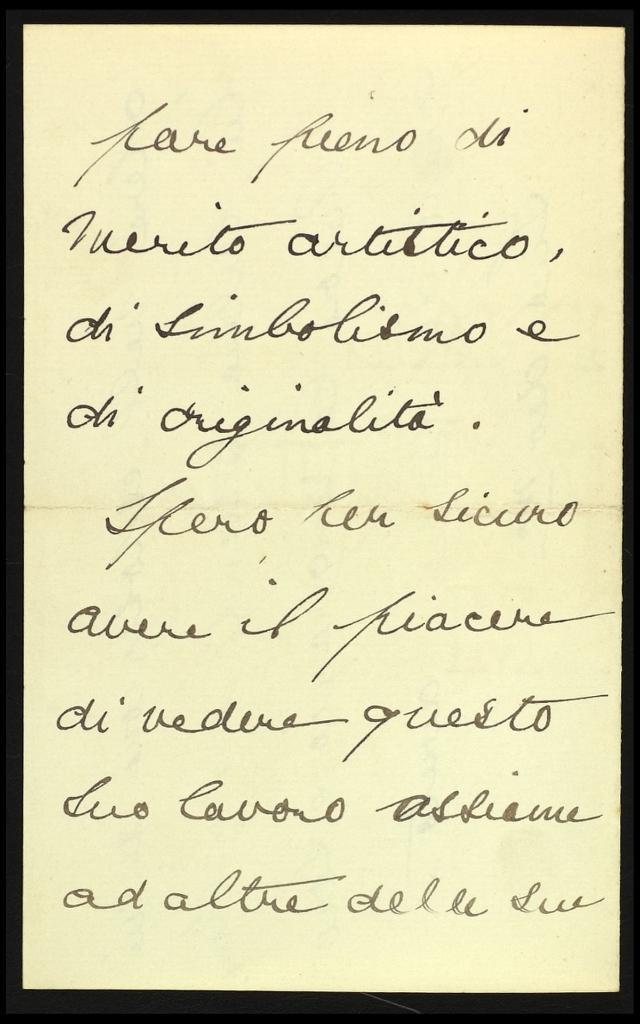 pare pieno di
merito artistico,
di simbolismo e
di originalità.
Spero per sicuro
avere il piacere
di vedere questo
suo lavoro assieme
ad altre delle sue